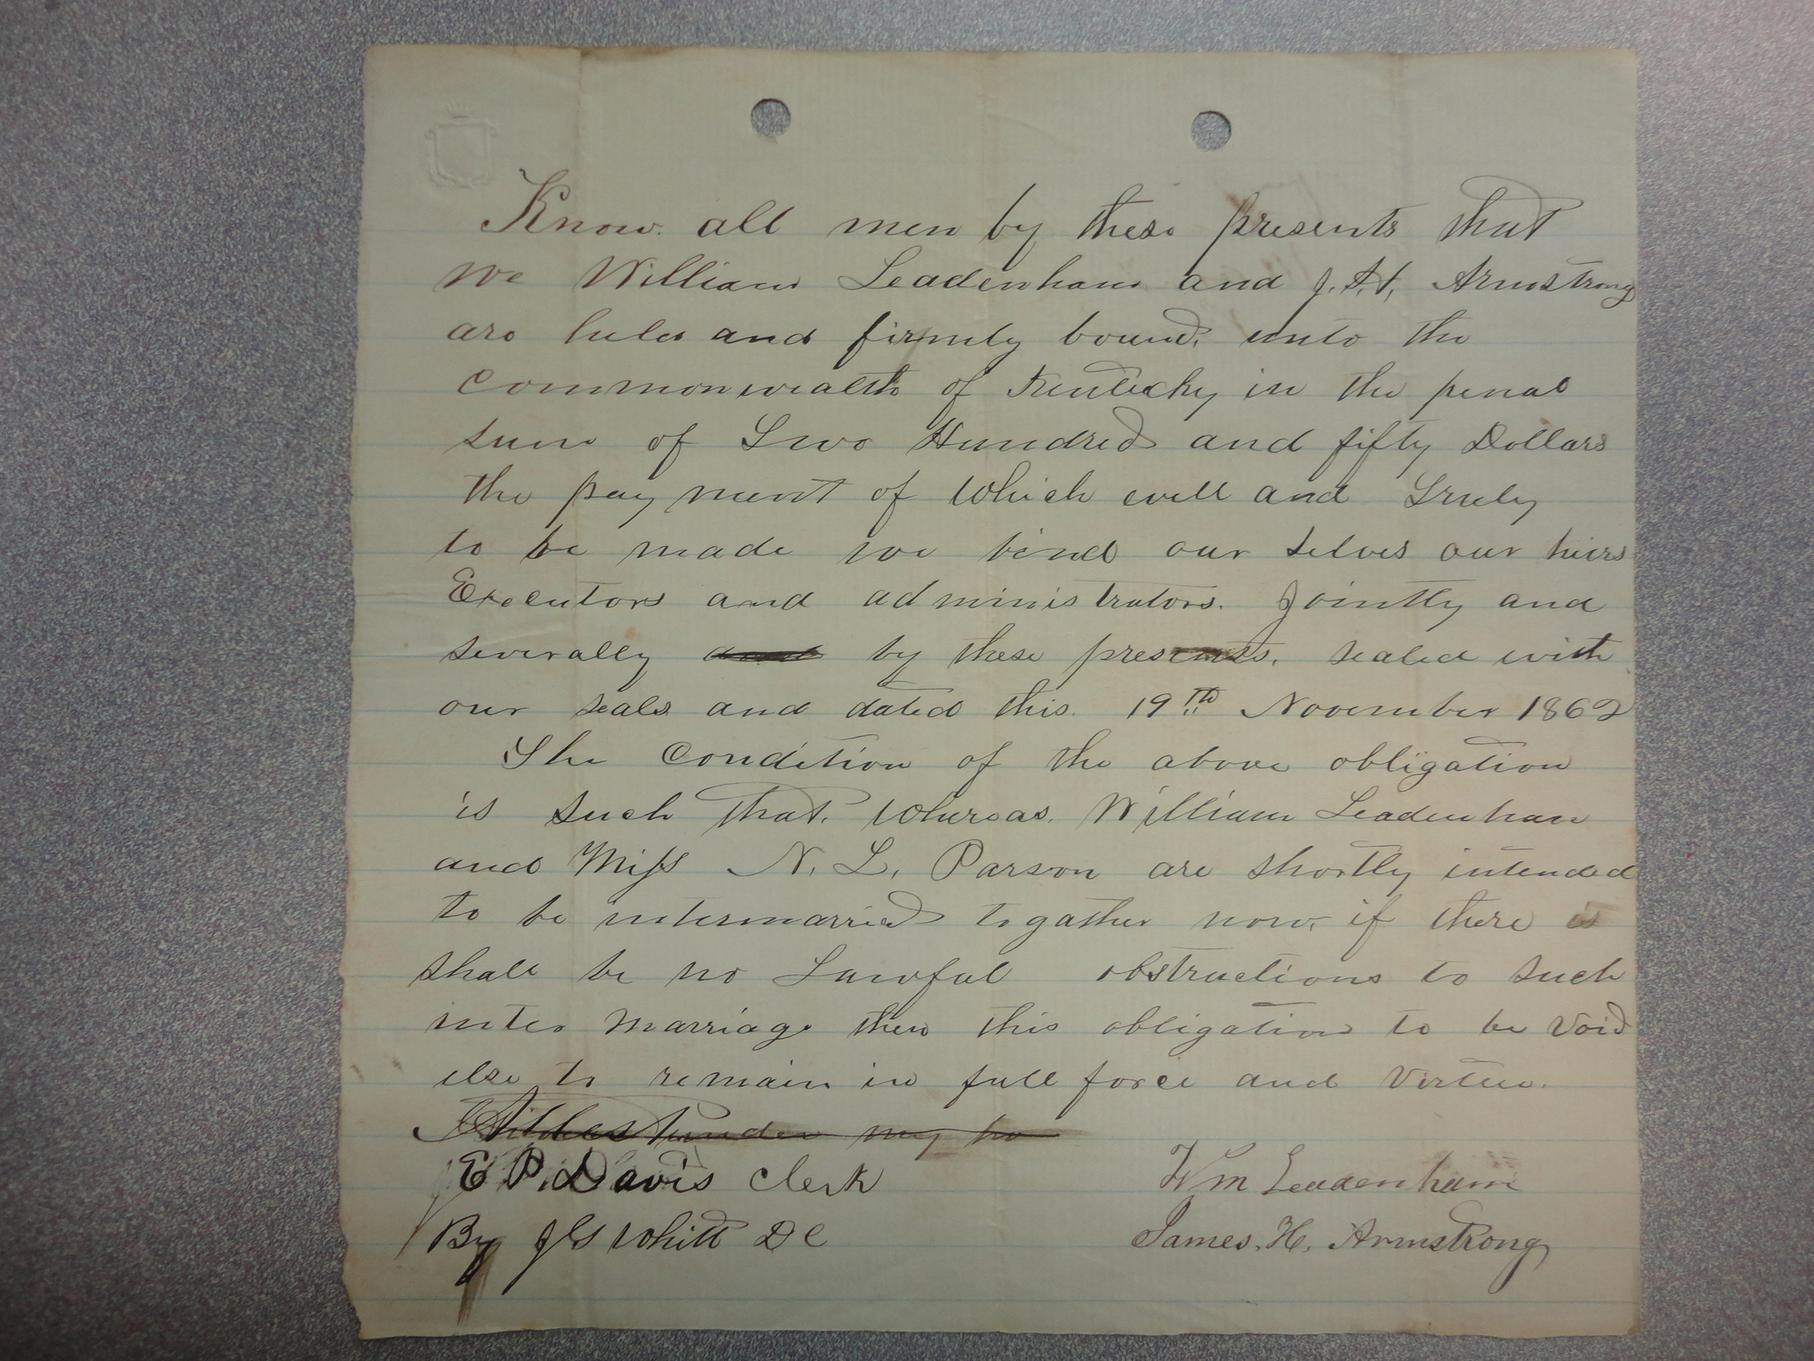 Know all men by these presents that
we William Leadenham and J. H. Armstrong
are held and firmly bound. unto the
commonwealth of Kentucky in the penal
sum of Two Hundred and fifty Dollars
the pay ment of which well and Truly
to be made we bind our selves our heirs
Executors and administrators. Jointly and
severally and by these presents. sealed with
our seals and dated this 19th November 1862
The condition of the above obligation
is such that. Whereas. William Leadenham
and Miss N. L. Parson are shortly intended
to be intermarried togather now, if there is
shall be no Lawful obstructions to such
inter marriage then this obligation to be void
else to remain in full force and virtue.
Attest under my ha
E P. Davis Clerk
By J G Whitt D C
Wm Leadenham
James. H. Armstrong